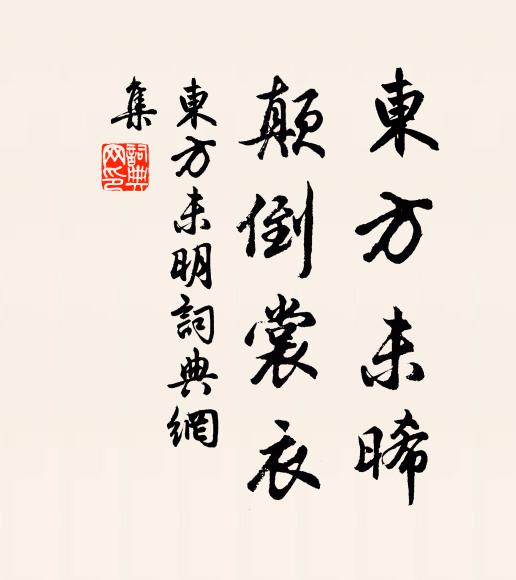 東方未晞
顛倒裳衣
東方未明詞典網
集
詞典網印